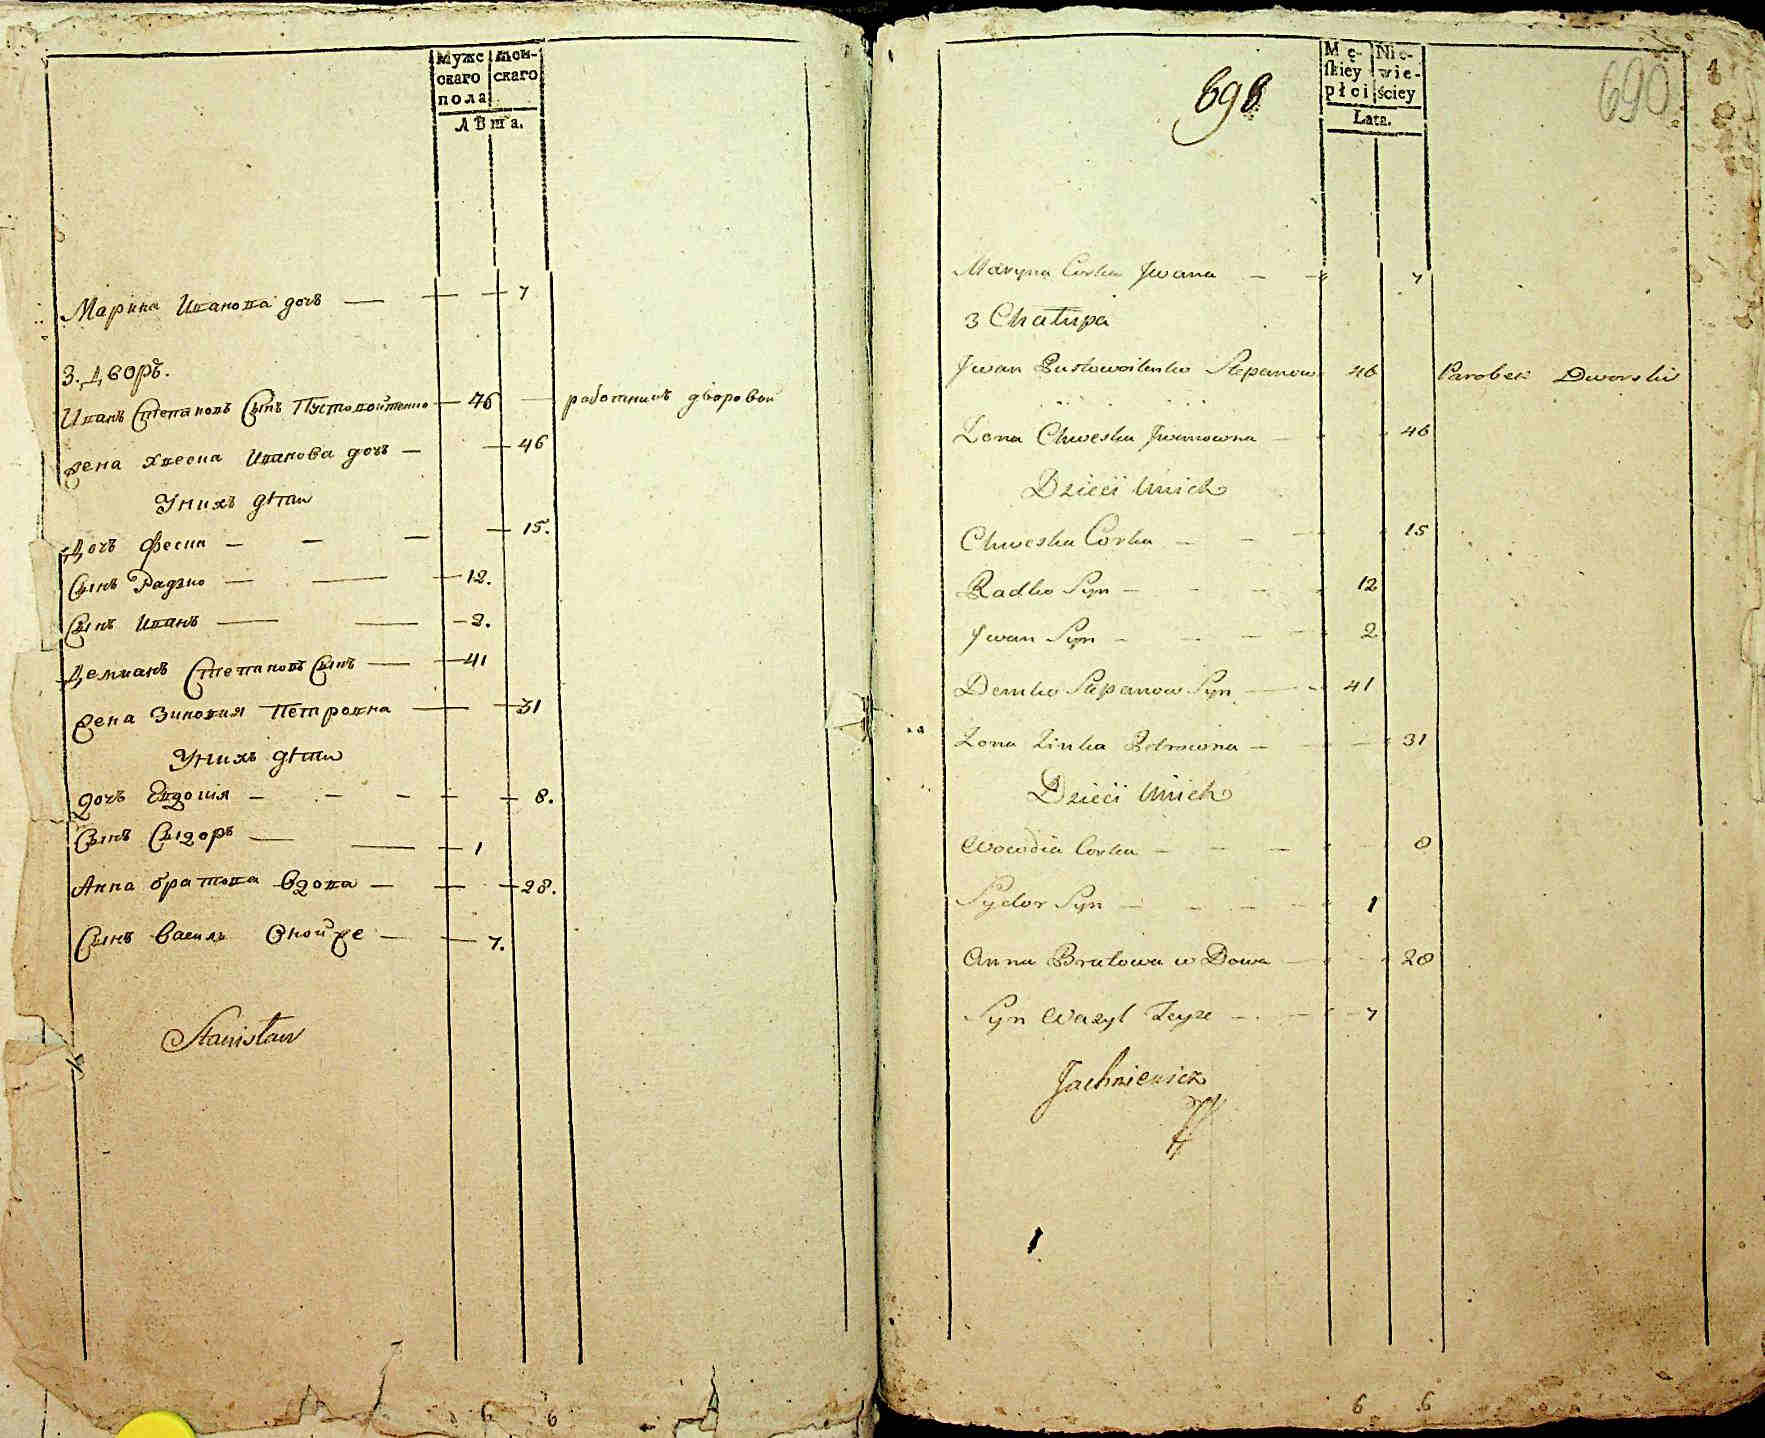 Мужс Жен-
скаго скаго
пола
лѣта.
Марина Иванова дочь — — — 7
3. дворъ.
Иванъ Степановъ Сынъ Пустовойтенко — 46 — работникъ дворовой
жена Хвеска Иванова дочь — — 46
Унихъ дѣти
Дочь Феска — — — — 15.
Сынъ Радько — — — 12.
Сынъ Иванъ — — — 2.
Демианъ Степановъ Сынъ — — 41
жена Зиновия Петровна — — 31
Унихъ дѣти
дочь Евдокія — — — — — 8.
Сынъ Сидоръ — — — 1
Анна братова вдова — — — 28.
Сынъ Василь Оной же — — 7.
Stanisław
6 6
698
690
Mę- Nie-
skiey wie-
płci ściey
Lata.
Maryna Corka Jwana — — 7
3 Chałupa
Jwan Pustowoitenko Stepanow 46 Parobek Dworski
Zona Chweska Jwanowna — 46
Dzieci Unich
Chweska Corka — — — 15
Radko Syn — — — 12
Jwan Syn — — — — 2
Demko Stepanow Syn — — 41
Zona Zinka Petrowna — — — 31
Dzieci Unich
Wowdia Corka — — — — 8
Sydor Syn — — — — 1
Anna Bratowa w Dowa — — 28
Syn Wazyl Teyze — — — 7
Jachniewicz
6 6